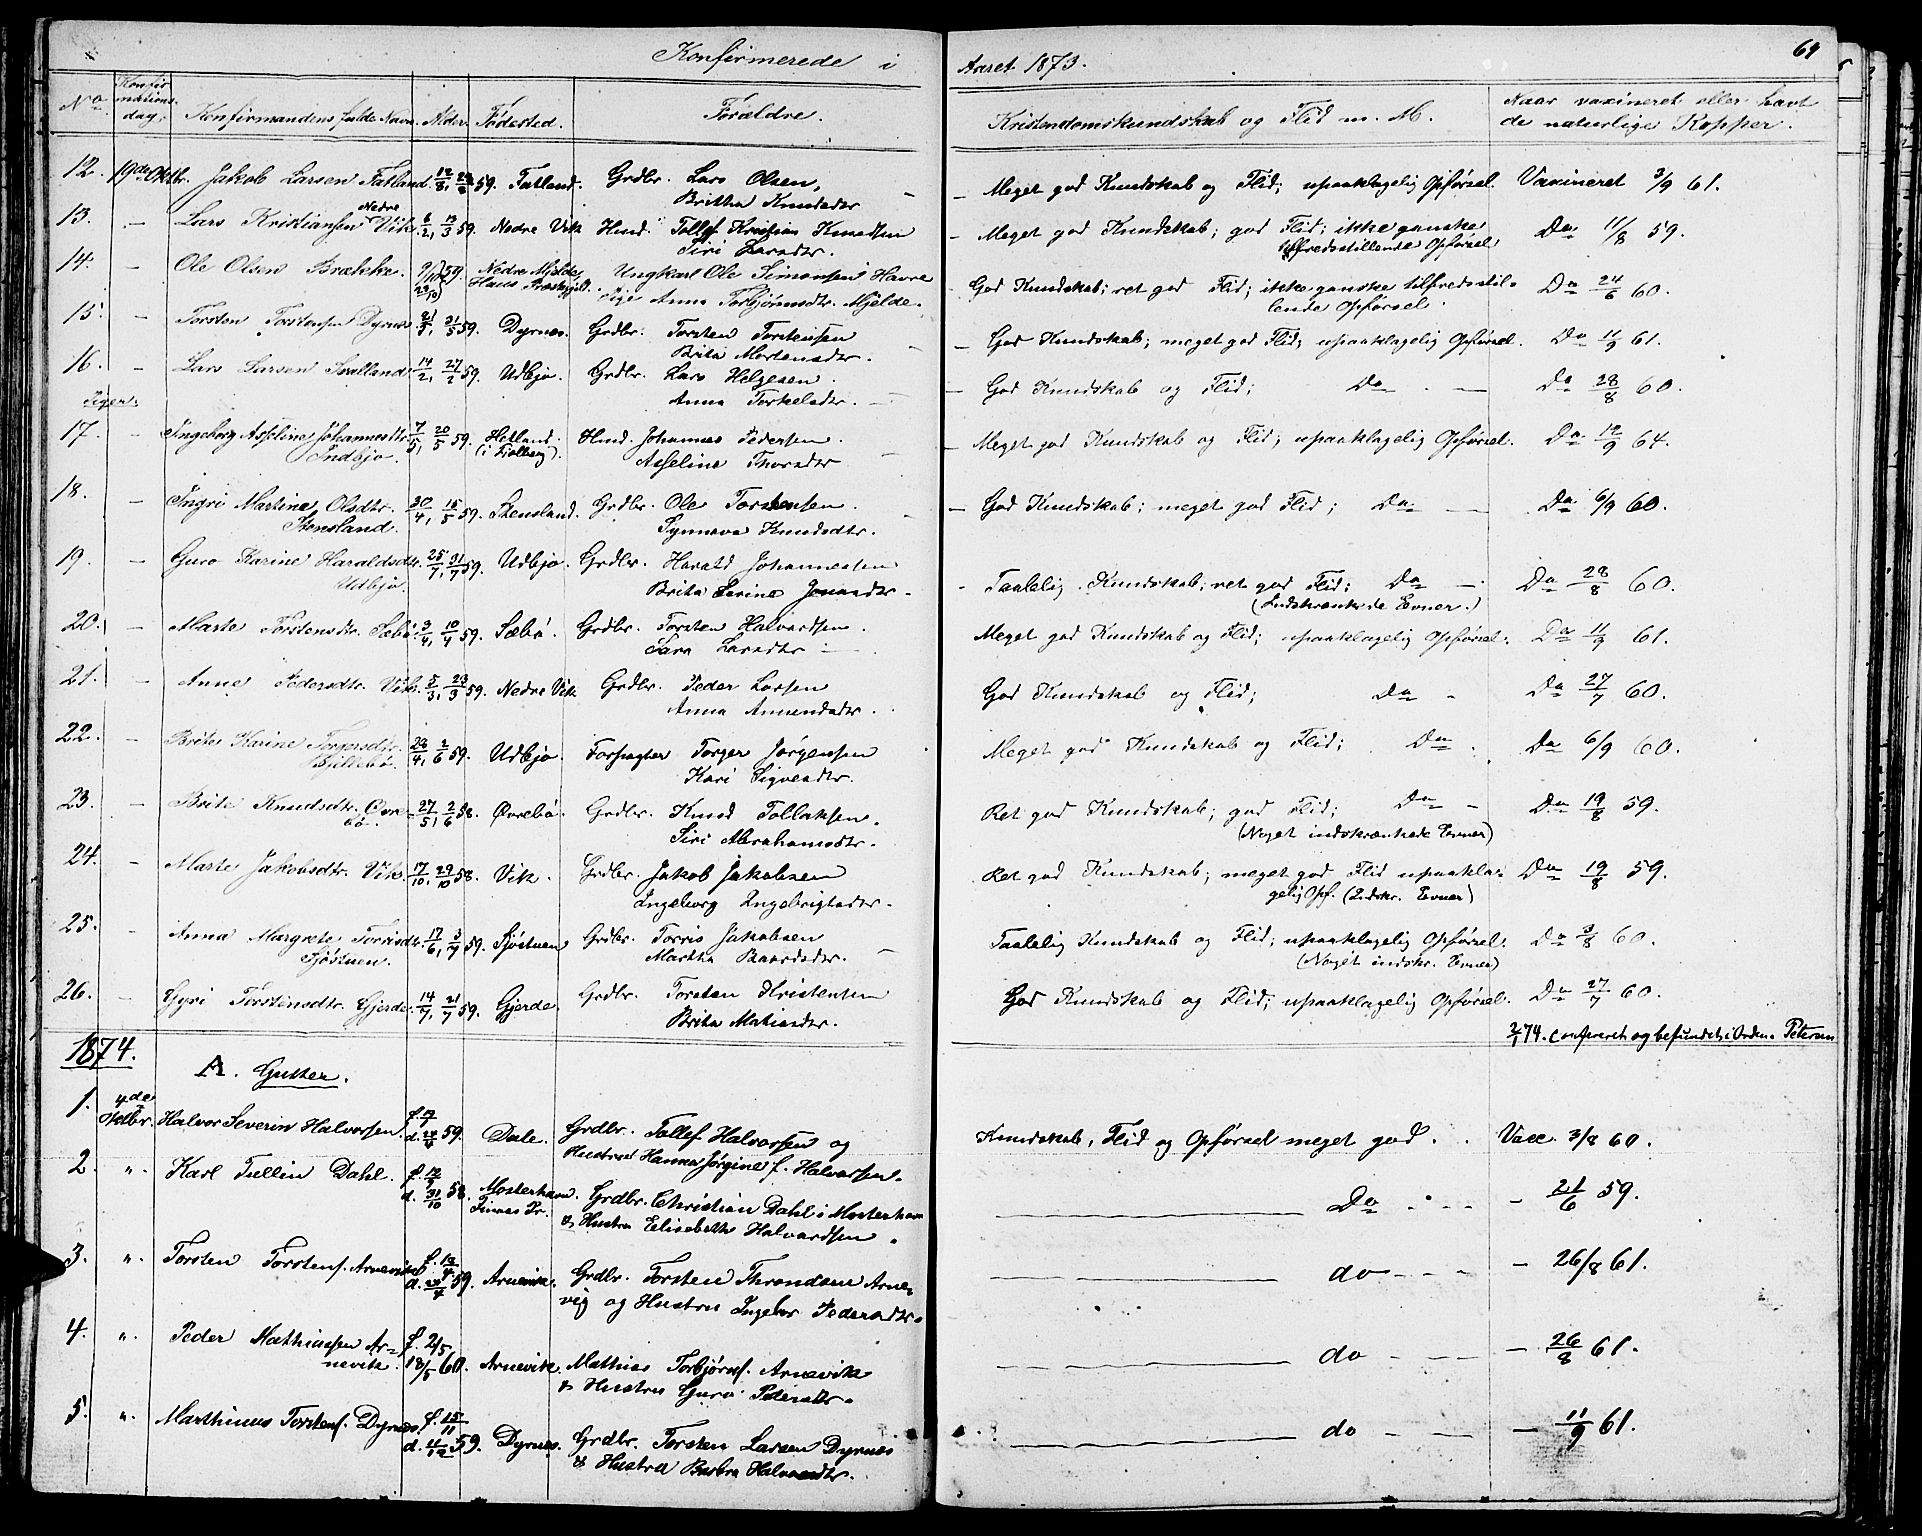 Konfirmerede i Aaret 1873. 69
No Konfirmationsdag. Konfirmandens fulde Navn. Alder. Fødested. Forældre. Kristendomskundskab og Flid m. M. Naar vaxineret eller havt de naturlige Kopper.
12. 19de Oktbr. Jakob Larsen Fatland. 59. Fatland. Grdbr. Lars Olsen, — Meget god Kundskab og Flid; upaaklagelig Opførsel. Vaxineret 3/9 61.
Britha Knudsdtr
13. — Lars Kristiansen Nedre Vik. 6/2, 13/3 59. Nedre Vik Husd. Tollef Kristian Knudsen — Meget god Kundskab; god Flid; ikke ganske Do 11/8 59.
Siri Larsdtr. tilfredsstillende Opførsel.
14. — Ole Olsen Brække. 59. Nedre Mjelde, Ungkarl Ole Simonsen Havre God Kundskab; ret god Flid; ikke ganske tilfredsstil- Do 24/6 60.
Haus Præstegjeld. Pige Anna Torbjørnsdtr. Mjelde. lende Opførsel.
15. — Torsten Torstensen Dyrnes 21/5, 31/5 59. Dyrnes. Grdbr. Torsten Torstensen — God Kundskab; meget god Flid; upaaklagelig Opførsel. Do 11/9 61.
Brita Mortensdtr. —
16. — Lars Larsen Sælland 14/2, 27/2 59. Udbjo. Grdbr. Lars Helgesen. — God Kundskab og Flid; Do — Do 28/8 60.
Anna Torkelsdtr. —
Piger.
17. — Ingeborg Asseline Johannesdtr. 7/5, 20/5 59. Hetland. Husd. Johannes Pedersen — Meget god Kundskab og Flid; upaaklagelig Opførsel. Do 12/9 64.
Indbjo. (i Fjelberg). Asseline Thorsdtr —
18. — Ingri Martine Olsdtr. 30/4, 15/5 59. Stensland. Grdbr. Ole Torstensen. — God Kundskab; meget god Flid; Do — Do 6/9 60.
Stensland. Synneva Knudsdtr. —
19. — Guro Karine Haraldsdtr. 25/7, 31/7 59. Udbjo. Grdbr. Harald Johannessen — Taalelig Kundskab; ret god Flid; Do — Do 28/8 60.
Udbjo. Brita Serine Jonasdtr. (Indskrænkede Evner.)
20. — Marte Torstensdtr. Sæbø. 3/4, 10/4 59. Sæbø. Grdbr. Torsten Halvardsen Meget god Kundskab og Flid; upaaklagelig Opførsel. Do 11/9 61.
Sara Larsdtr —
21. — Anne Pedersdtr. Vik. 5/3, 23/3 59. Nedre Vik Grdbr. Peder Larsen God Kundskab og Flid; Do — Do 27/7 60.
Anna Amundsdtr.
22. — Brite Karine Torgersdtr. 59. Udbjo. Forpagter Torger Jørgensen Meget god Kundskab og Flid; Do Do 6/9 60.
Kari Sigvesdtr.
23. — Brite Knudsdtr. Øvre- 27/5, 2/6 58. Øvrebø. Grdbr. Knud Tollaksen. Ret god Kundskab; god Flid; Do — Do 19/8 59.
bø. Siri Abrahamsdtr. (Noget indskrænkede Evner)
24. — Marte Jakobsdtr. Vik. 17/10, 29/10 58. Vik. Grdbr. Jakob Jakobsen Ret god Kundskab; meget god Flid upaakla- Do 19/8 59.
Ingeborg Ingebrigtsdtr. gelig Opf. (Indskr. Evner)
25. — Anna Margrete Torrisdtr. 17/6, 3/7 59. Sjøstuen Grdbr. Torris Jakobsen Taalelig Kundskab og Flid; upaaklagelig Opførsel. Do 3/8 60.
Sjøstuen. Martha Baardsdtr. — (Noget indskr. Evner)
26. — Gyri Torstensdtr. Gjerde. 14/7, 21/7 59. Gjerde. Grdbr. Torsten Kristensen God Kundskab og Flid; upaaklagelig Opførsel. Do 27/7 60.
Brita Matiasdtr.
2/1 74. Confereret og befundet i Orden. Petersen
1874. A. Gutter.
1. 4de Oktbr. Halvor Severin Halvorsen. 59. Dale. Grdbr. Tollef Halvorsen og Kundskab, Flid og Opførsel meget god. Vacc. 3/8 60.
Hustru Hanna Jørgine f. Halvorsen.
2. " Karl Tullin Dahl. d. 31/10 58. Mosterhavn. Grdbr. Christian Dahl i Mosterhavn — Do — 21/6 59.
Finnaas Pr. & Hustru Elisabeth Halvardsen.
3. " Torsten Torstens. Arnevik f. 12/4 59. Arnevik. Grdbr. Torsten Throndsen Arne- — do — 26/8 61.
vig og Hustru Ingebor Pedersdtr.
4. " Peder Mathiassen Ar- f. 2/5, Arnevik. Mathias Torbjørns. Arnevik — do — 26/8 61.
nevik. 18/5 60. & Hustru Guro Pedersdtr.
5. " Marthinus Torstens. Dyrnes. f. 15/11 Dyrnes. Grdbr. Torsten Larsen Dyrnes — do — 11/9 61.
d. 11/12 59. & Hustru Barbra Halvorsdtr.